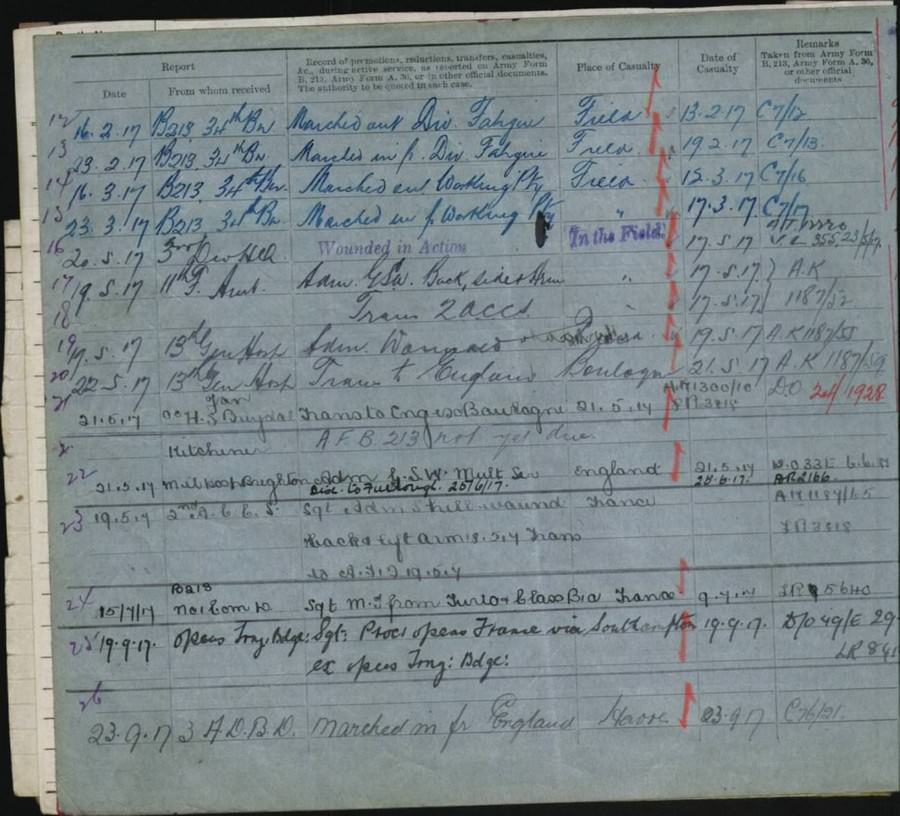 Report
Record of promotions, reductions, transfers, casualties, &c., during active service, as reported on Army Form B. 213, Army Form A. 36, or in other official documents. The authority to be quoted in each case.
Place of Casualty
Date of Casualty
Remarks
Taken from Army Form B. 213, Army Form A. 36, or other official documents
Date
From whom received
12 16.2.17 B213 34th Bn Marched out Div. Fatigue Field 13.2.17 C7/12
13 23.2.17 B213 34th Bn. Marched in f. Div Fatigue Field 19 2.17 C7/13
14 16.3.17 B213 34th Bn. Marched out Working Pty Field 12.3.17 C7/16
15 23.3.17 B213 34th Bn Marched in f. Working Pty " 17.3.17. C7/17
16 20.5.17 3rd Div Hd Wounded in Action In the Field. 17.5.17
17 19.5.17 11th F. Amb. Adm. GSW. Back, side & Arm " 17.5.17 A.K
18 Trans 2 ACCS " 17.5.17 1187/52
19 19.5.17 13th Gen Hosp Adm. Wounded 19.5.17 A.K 1187/55
20 22.5.17 13th Gen Hosp Trans to England Boulogne 21.5.17 A.K 1187/59
21.5.17 H.S. Trans to Eng ex Boulogne 21.5.17 AK1300/10 D.O. 24/1928
Kitchener A.F.B. 213 not yet due.
22 21.5.17 Mil Hosp Brighton Adm G.S.W. Mult Sev England 21.5.17
Disc. to Furlough. 28/6/17. 28.6.17.
23 19.5.17 2nd A.C.C.S. Sgt Adm Shell wound France AK1187/65
Back & left arm 18.5.17 Trans
to A.T. 19.5.17
24 15/7/17 B213 Sgt M.I from Furlo & Class B1a France 9.7.17 5640
25 19.9.17. Opeas Trng. Bdge: Sgt: Procs opeas France via Southampton 19.9.17. D/O 49/E 29
ex opeas Trng: Bdge:
26
23.9.17 3 A.D.B.D. Marched in fr England Havre 23.9.17 C76/21